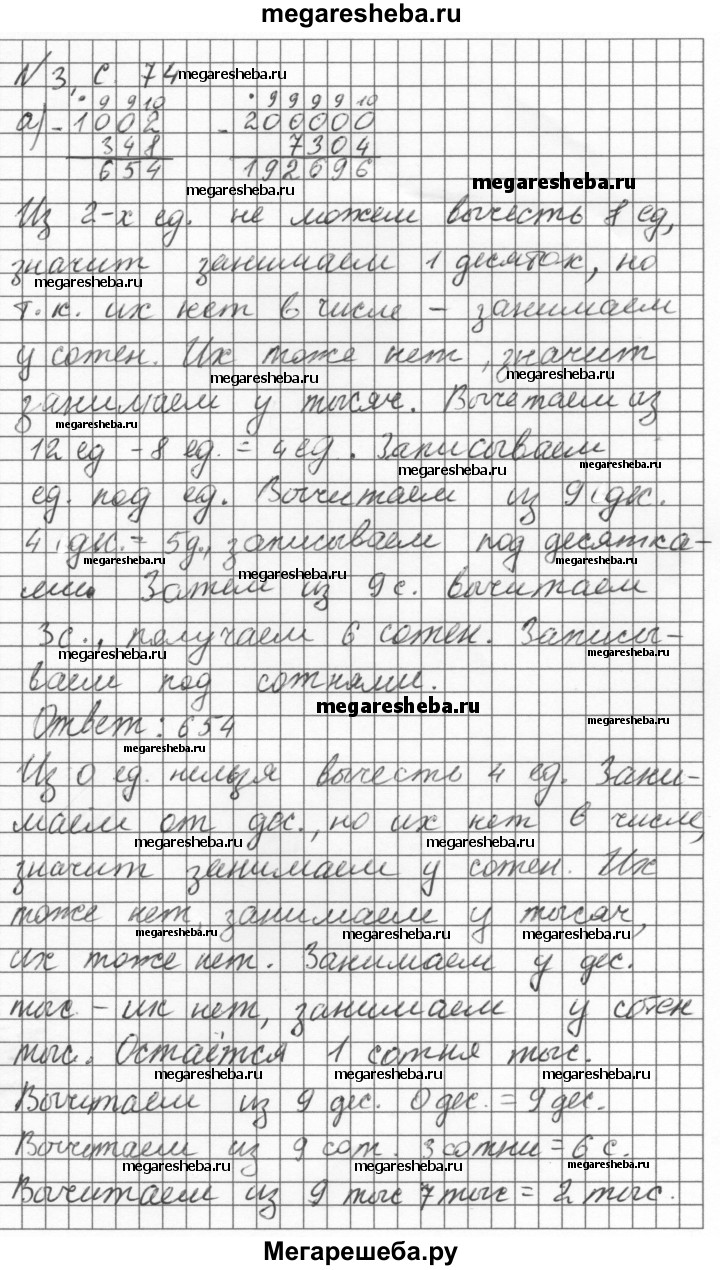 megaresheba.ru
N 3, с. 74 megaresheba.ru
9 9 10 9 9 9 9 10
а) - 1002 - 200000
348 7304
654 192696
megaresheba.ru megaresheba.ru
Из 2-х ед. не можем вычесть 8 ед,
значит занимаем 1 десяток, но
megaresheba.ru
т.к. их нет в числе - занимаем
у сотен. Их тоже нет, значит
megaresheba.ru megaresheba.ru
занимаем у тысяч. Вычетаем из
megaresheba.ru
12 ед - 8 ед. = 4 ед. Записываем
megaresheba.ru megaresheba.ru
ед. под ед. Вычитаем из 9 дес.
4 дес. = 5д., записываем под десятка-
megaresheba.ru megaresheba.ru megaresheba.ru
ми. Затем из 9 с. вычитаем
3с., получаем 6 сотен. Записы-
megaresheba.ru megaresheba.ru
ваем под сотнями.
megaresheba.ru
Ответ: 654 megaresheba.ru
megaresheba.ru
Из 0 ед. нельзя вычесть 4 ед. Зани-
маем от дес., но их нет в числе,
megaresheba.ru megaresheba.ru
значит занимаем у сотен. Их
тоже нет, занимаем у тысяч,
megaresheba.ru megaresheba.ru megaresheba.ru
их тоже нет. Занимаем у дес.
тыс - их нет, занимаем у сотен
тыс. Остаётся 1 сотня тыс.
megaresheba.ru megaresheba.ru megaresheba.ru
Вычитаем из 9 дес. 0 дес. = 9 дес.
Вычитаем из 9 сот. 3 сотни = 6 с.
megaresheba.ru megaresheba.ru megaresheba.ru
Вычитаем из 9 тыс 7 тыс = 2 тыс.
Мегарешеба.ру